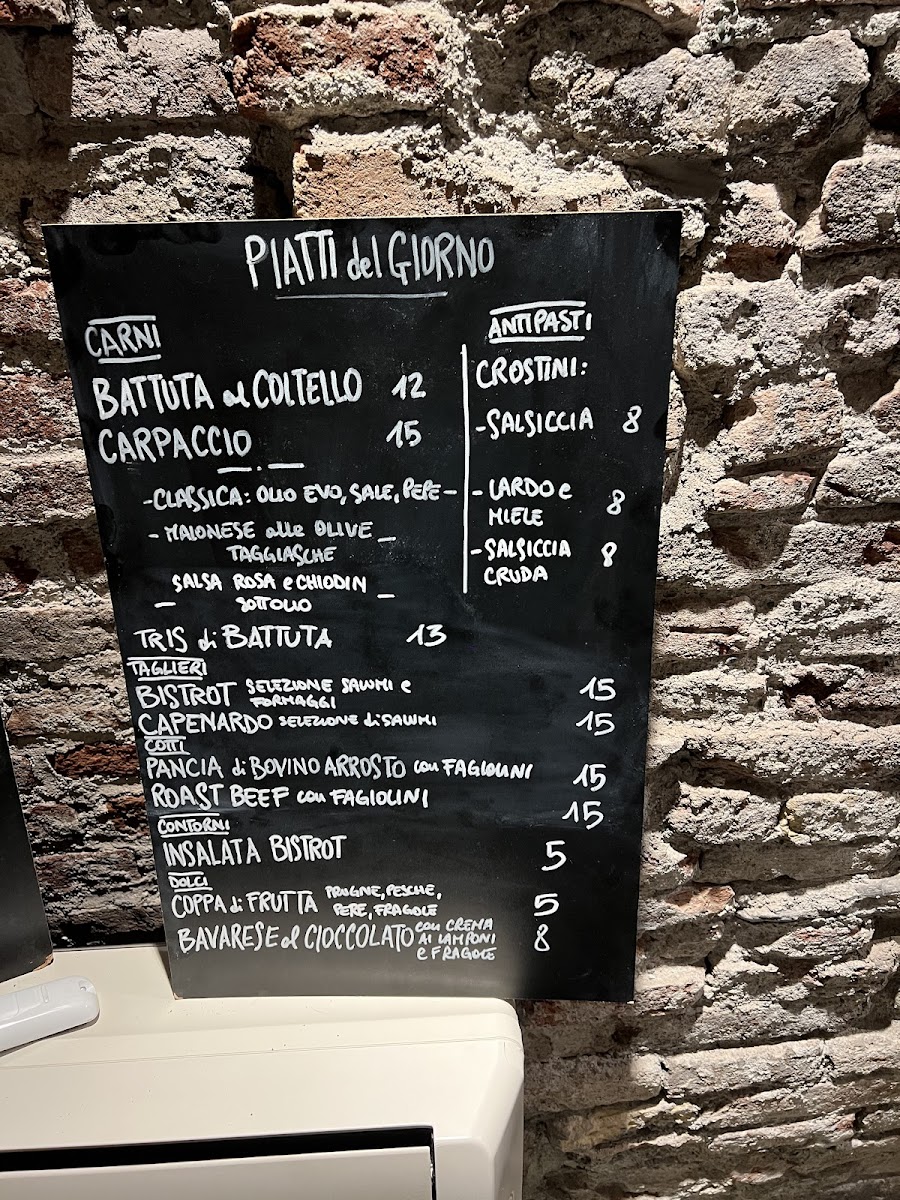 PIATTI del GIORNO
CARNI
BATTUTA al COLTELLO 12
CARPACCIO 15
-CLASSICA: OLIO EVO, SALE, PEPE-
- MAIONESE alle OLIVE
TAGGIASCHE -
- SALSA ROSA e CHIODIN
SOTTOLIO -
TRIS di BATTUTA 13
ANTIPASTI
CROSTINI:
-SALSICCIA 8
- LARDO e
MIELE 8
-SALSICCIA
CRUDA 8
TAGLIERI
BISTROT SELEZIONE SALUMI e
FORMAGGI 15
CAPENARDO SELEZIONE di SALUMI 15
COTTI
PANCIA di BOVINO ARROSTO con FAGIOLINI 15
ROAST BEEF con FAGIOLINI 15
CONTORNI
INSALATA BISTROT 5
DOLCI
COPPA di FRUTTA PRUGNE, PESCHE,
PERE, FRAGOLE 5
BAVARESE al CIOCCOLATO con CREMA
AI LAMPONI
e FRAGOLE 8